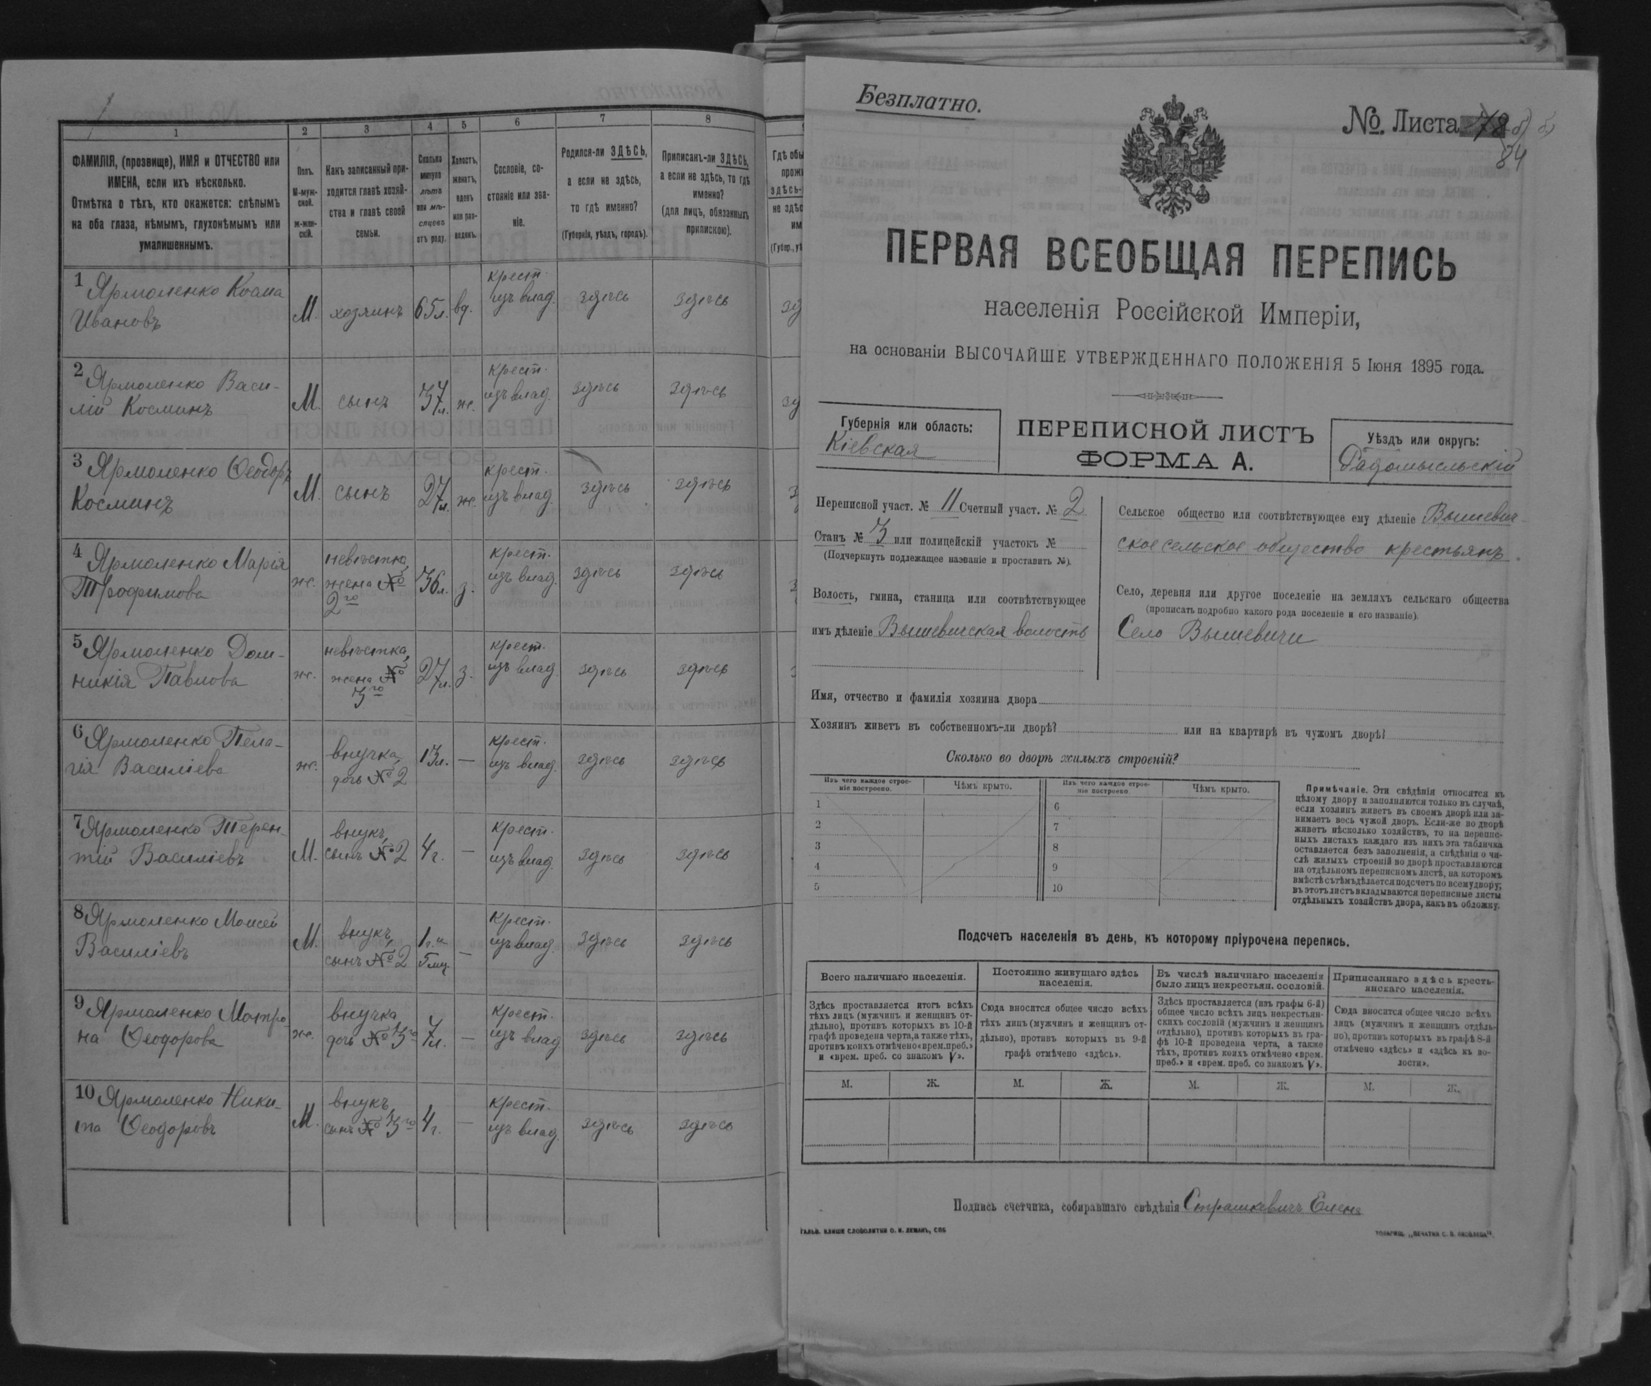 1
2
3
4
5
6
7
8
ФАМИЛІЯ, (прозвище), ИМЯ и ОТЧЕСТВО или
ИМЕНА, если ихъ нѣсколько.
Отмѣтка о тѣхъ, кто окажется: слѣпымъ
на оба глаза, нѣмымъ, глухонѣмымъ или
умалишеннымъ.
Полъ.
М-муж-
ской.
Ж-жен-
скій.
Какъ записанный при-
ходится главѣ хозяй-
ства и главѣ своей
семьи.
Сколько
минуло
лѣтъ
или мѣ-
сяцевъ
отъ роду.
Холостъ,
женатъ,
вдовъ
или раз-
веденъ.
Сословіе, со-
стояніе или зва-
ніе.
Родился-ли ЗДѢСЬ,
а если не здѣсь,
то гдѣ именно?
(Губернія, уѣздъ, городъ).
Приписанъ-ли ЗДѢСЬ,
а если не здѣсь, то гдѣ
именно?
(для лицъ, обязанныхъ
припискою).
1 Ярмоленко Косма
Ивановъ
М.
хозяинъ
65 л.
вд.
крест.
изъ влад.
здѣсь
здѣсь
2 Ярмоленко Васи-
лій Косминъ
М.
сынъ
37 л.
ж.
крест.
изъ влад.
здѣсь
здѣсь
3 Ярмоленко Ѳеодоръ
Косминъ
М.
сынъ
27 л.
ж.
крест.
изъ влад.
здѣсь
здѣсь
4 Ярмоленко Марія
Трофимова
ж.
невѣстка,
жена №
2го
36 л.
з.
крест.
изъ влад.
здѣсь
здѣсь
5 Ярмоленко Дом-
никія Павлова
ж.
невѣстка,
жена №
3го
27 л.
з.
крест.
изъ влад.
здѣсь
здѣсь
6 Ярмоленко Пела-
гія Василіева
ж.
внучка,
дочь № 2
13 л.
—
крест.
изъ влад.
здѣсь
здѣсь
7 Ярмоленко Терен-
тій Василіевъ
М.
внукъ,
сынъ № 2
4 г.
—
крест.
изъ влад.
здѣсь
здѣсь
8 Ярмоленко Моисей
Василіевъ
М.
внукъ,
сынъ № 2
1 г. и
5 мц.
—
крест.
изъ влад.
здѣсь
здѣсь
9 Ярмоленко Матро
на Ѳеодорова
ж.
внучка
дочь № 3го
7 л.
—
крест.
изъ влад.
здѣсь
здѣсь
10 Ярмоленко Ники-
та Ѳеодоровъ
М.
внукъ,
сынъ № 3го
4 г.
—
крест.
изъ влад.
здѣсь
здѣсь
Безплатно.
№. Листа
84
ПЕРВАЯ ВСЕОБЩАЯ ПЕРЕПИСЬ
населенія Россійской Имперіи,
на основаніи ВЫСОЧАЙШЕ УТВЕРЖДЕННАГО ПОЛОЖЕНІЯ 5 Іюня 1895 года.
Губернія или область:
Кіевская
ПЕРЕПИСНОЙ ЛИСТЪ
ФОРМА А.
Уѣздъ или округъ:
Радомысльскій
Переписной участ. № 11 Счетный участ. № 2
Станъ № 3 или полицейскій участокъ №
(Подчеркнуть подлежащее названіе и проставить №).
Волость, гмина, станица или соотвѣтствующее
имъ дѣленіе Вышевичская волость
Сельское общество или соотвѣтствующее ему дѣленіе Вышевич-
ское сельское общество крестьянъ.
Село, деревня или другое поселеніе на земляхъ сельскаго общества
(прописать подробно какого рода поселеніе и его названіе).
Село Вышевичи
Имя, отчество и фамилія хозяина двора
Хозяинъ живетъ въ собственномъ-ли дворѣ? или на квартирѣ въ чужомъ дворѣ?
Сколько во дворѣ жилыхъ строеній?
Изъ чего каждое строе-
ніе построено.
Чѣмъ крыто.
Изъ чего каждое строе-
ніе построено.
Чѣмъ крыто.
1
2
3
4
5
6
7
8
9
10
Примѣчаніе. Эти свѣдѣнія относятся къ
цѣлому двору и заполняются только въ случаѣ,
если хозяинъ живетъ въ своемъ дворѣ или за-
нимаетъ весь чужой дворъ. Если-же во дворѣ
живетъ нѣсколько хозяйствъ, то на перепис-
ныхъ листахъ каждаго изъ нихъ эта табличка
оставляется безъ заполненія, а свѣдѣнія о чи-
слѣ жилыхъ строеній во дворѣ проставляются
на отдѣльномъ переписномъ листѣ, на которомъ
вмѣстѣ съ тѣмъ дѣлается подсчетъ по всему двору;
въ этотъ листъ вкладываются переписные листы
отдѣльныхъ хозяйствъ двора, какъ въ обложку.
Подсчетъ населенія въ день, къ которому пріурочена перепись.
Всего наличнаго населенія.
Постоянно живущаго здѣсь
населенія.
Въ числѣ наличнаго населенія
было лицъ некрестьян. сословій.
Приписаннаго здѣсь кресть-
янскаго населенія.
Здѣсь проставляется итогъ всѣхъ
тѣхъ лицъ (мужчинъ и женщинъ от-
дѣльно), противъ которыхъ въ 10-й
графѣ проведена черта, а также тѣхъ,
противъ коихъ отмѣчено «врем. преб.»
и «врем. преб. со знакомъ V».
Сюда вносится общее число всѣхъ
тѣхъ лицъ (мужчинъ и женщинъ от-
дѣльно), противъ которыхъ въ 9-й
графѣ отмѣчено «здѣсь».
Здѣсь проставляется (изъ графы 6-й)
общее число всѣхъ лицъ некрестьян-
скихъ сословій (мужчинъ и женщинъ
отдѣльно), противъ которыхъ въ гра-
фѣ 10-й проведена черта, а также
тѣхъ, противъ коихъ отмѣчено «врем.
преб.» и «врем. преб. со знакомъ V».
Сюда вносится общее число всѣхъ
лицъ (мужчинъ и женщинъ отдѣль-
но), противъ которыхъ въ графѣ 8-й
отмѣчено «здѣсь» и «здѣсь въ во-
лости».
М.
Ж.
М.
Ж.
М.
Ж.
М.
Ж.
Подпись счетчика, собиравшаго свѣдѣнія Страшкевичъ Елена